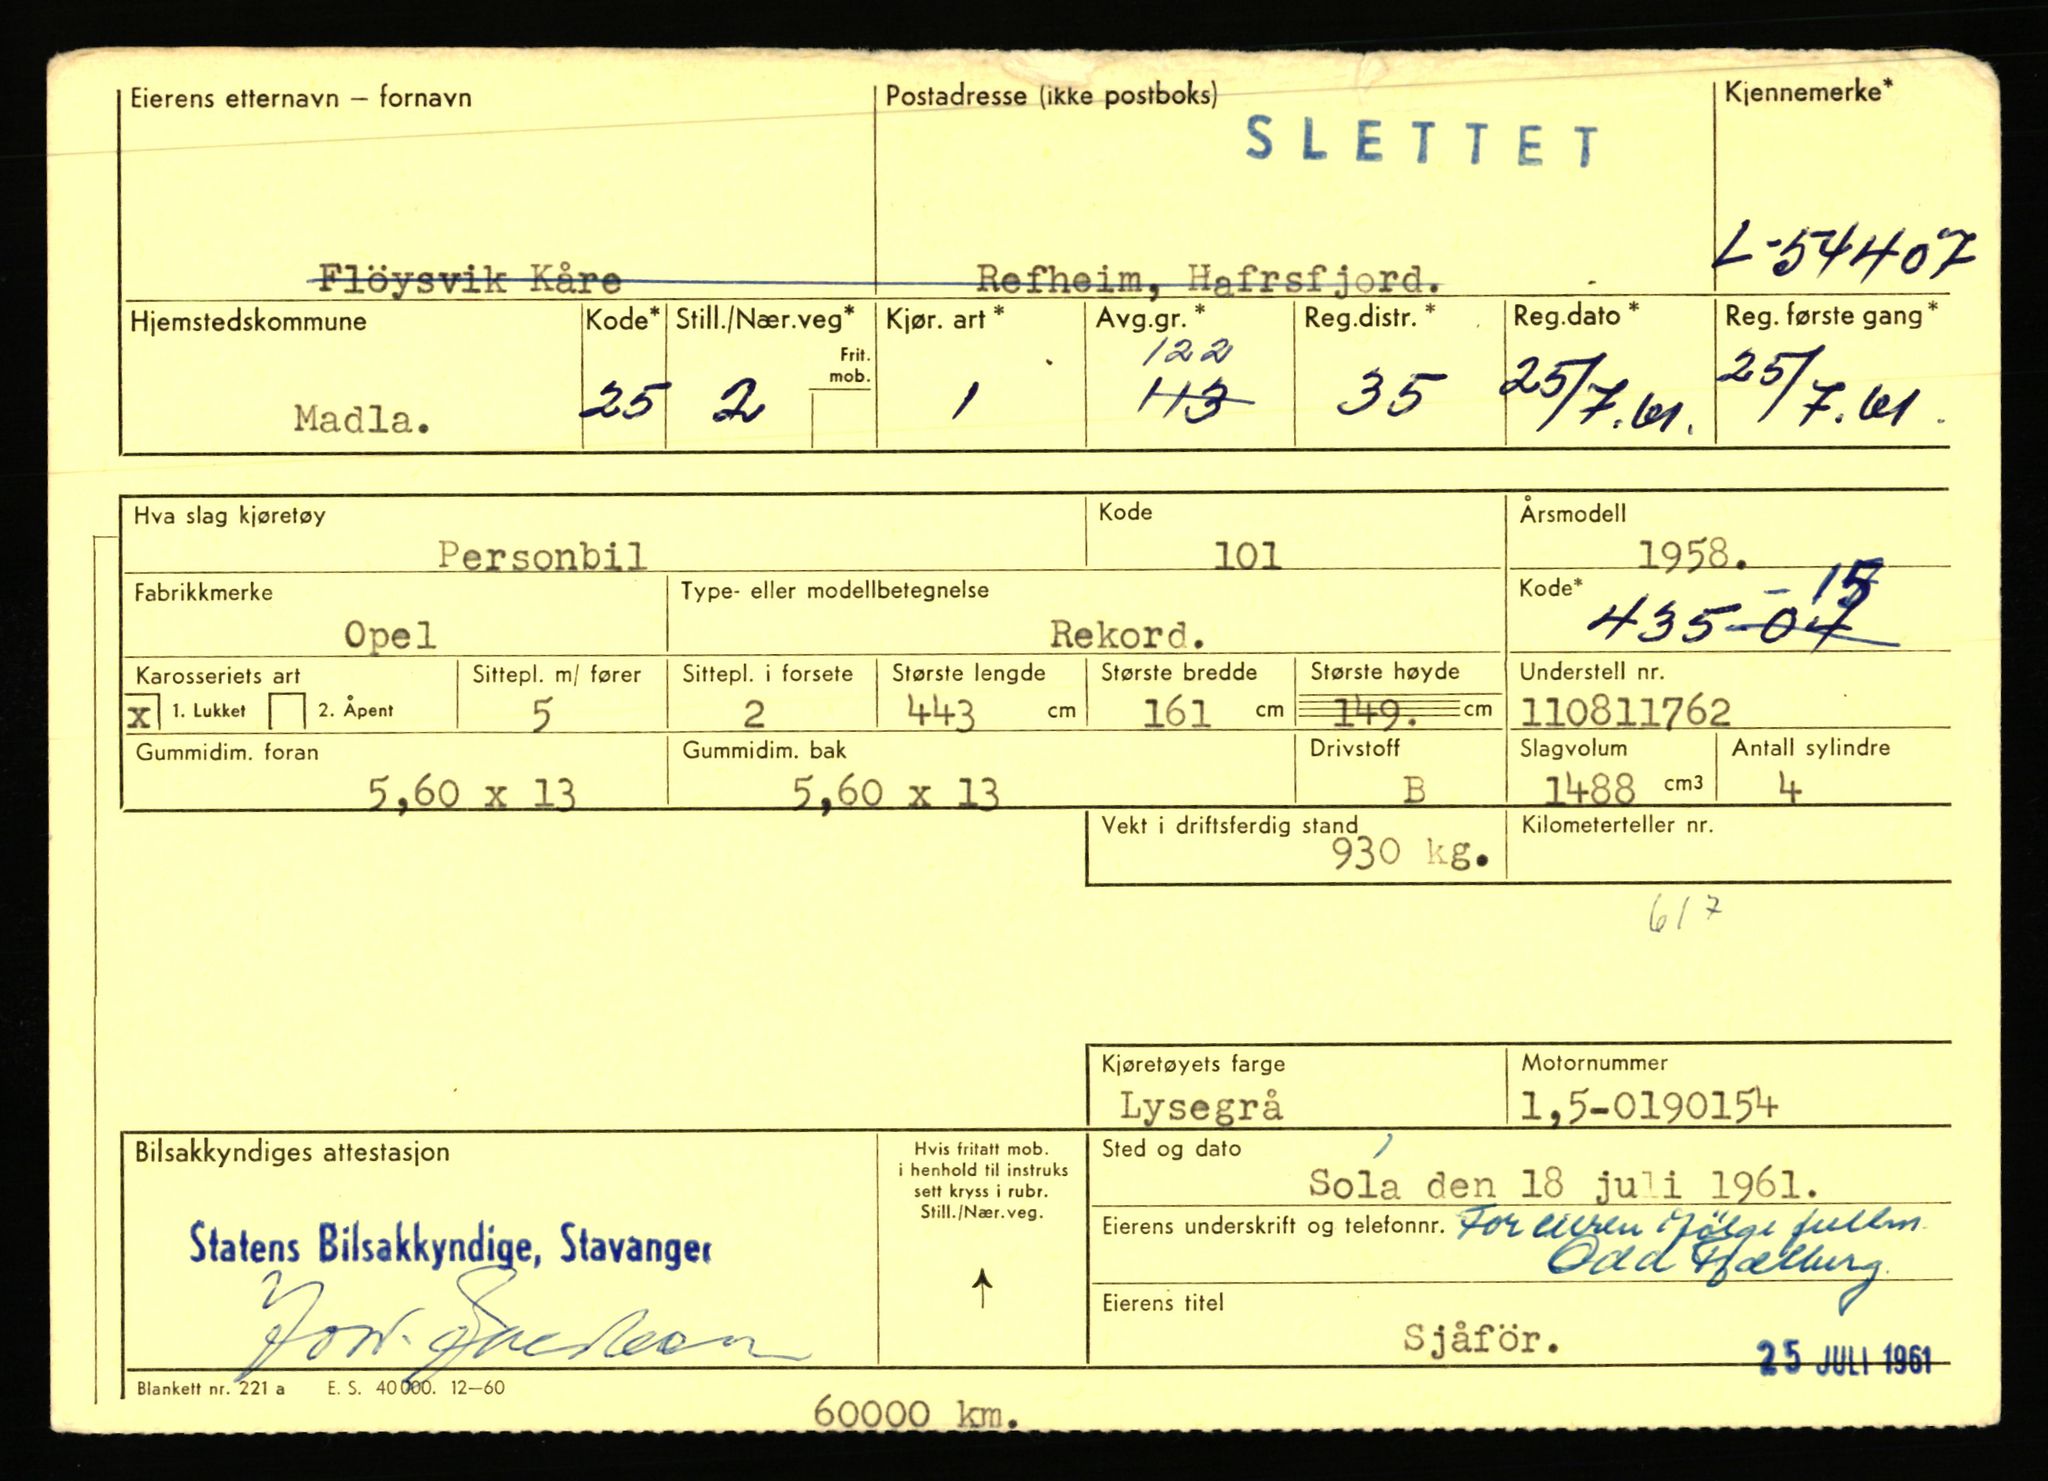 Eierens etternavn – fornavn
Postadresse (ikke postboks)
Kjennemerke*
SLETTET
L-54407
Flöysvik Kåre
Refheim, Hafrsfjord.
Hjemstedskommune
Kode*
Still./Nær.veg*
Frit. mob.
Kjør. art *
Avg.gr. *
Reg.distr. *
Reg.dato *
Reg. første gang *
122
Madla.
25
2
1
113
35
25/7.61.
25/7.61.
Hva slag kjøretøy
Kode
Årsmodell
Personbil
101
1958.
Fabrikkmerke
Type- eller modellbetegnelse
Kode*
-15
Opel
Rekord.
435-04
Karosseriets art
Sittepl. m/ fører
Sittepl. i forsete
Største lengde
Største bredde
Største høyde
Understell nr.
x 1. Lukket 2. Åpent
5
2
443 cm
161 cm
149. cm
110811762
Gummidim. foran
Gummidim. bak
Drivstoff
Slagvolum
Antall sylindre
5,60 x 13
5,60 x 13
B
1488 cm3
4
Vekt i driftsferdig stand
Kilometerteller nr.
930 kg.
617
Kjøretøyets farge
Motornummer
Lysegrå
1,5-0190154
Bilsakkyndiges attestasjon
Hvis fritatt mob.
i henhold til instruks
sett kryss i rubr.
Still./Nær.veg.
Sted og dato
Sola den 18 juli 1961.
Statens Bilsakkyndige, Stavanger
Eierens underskrift og telefonnr.
For eieren ifölge fullm.
Odd
Eierens titel
Sjåför.
25 JULI 1961
Blankett nr. 221 a E. S. 40 000. 12–60
60000 km.